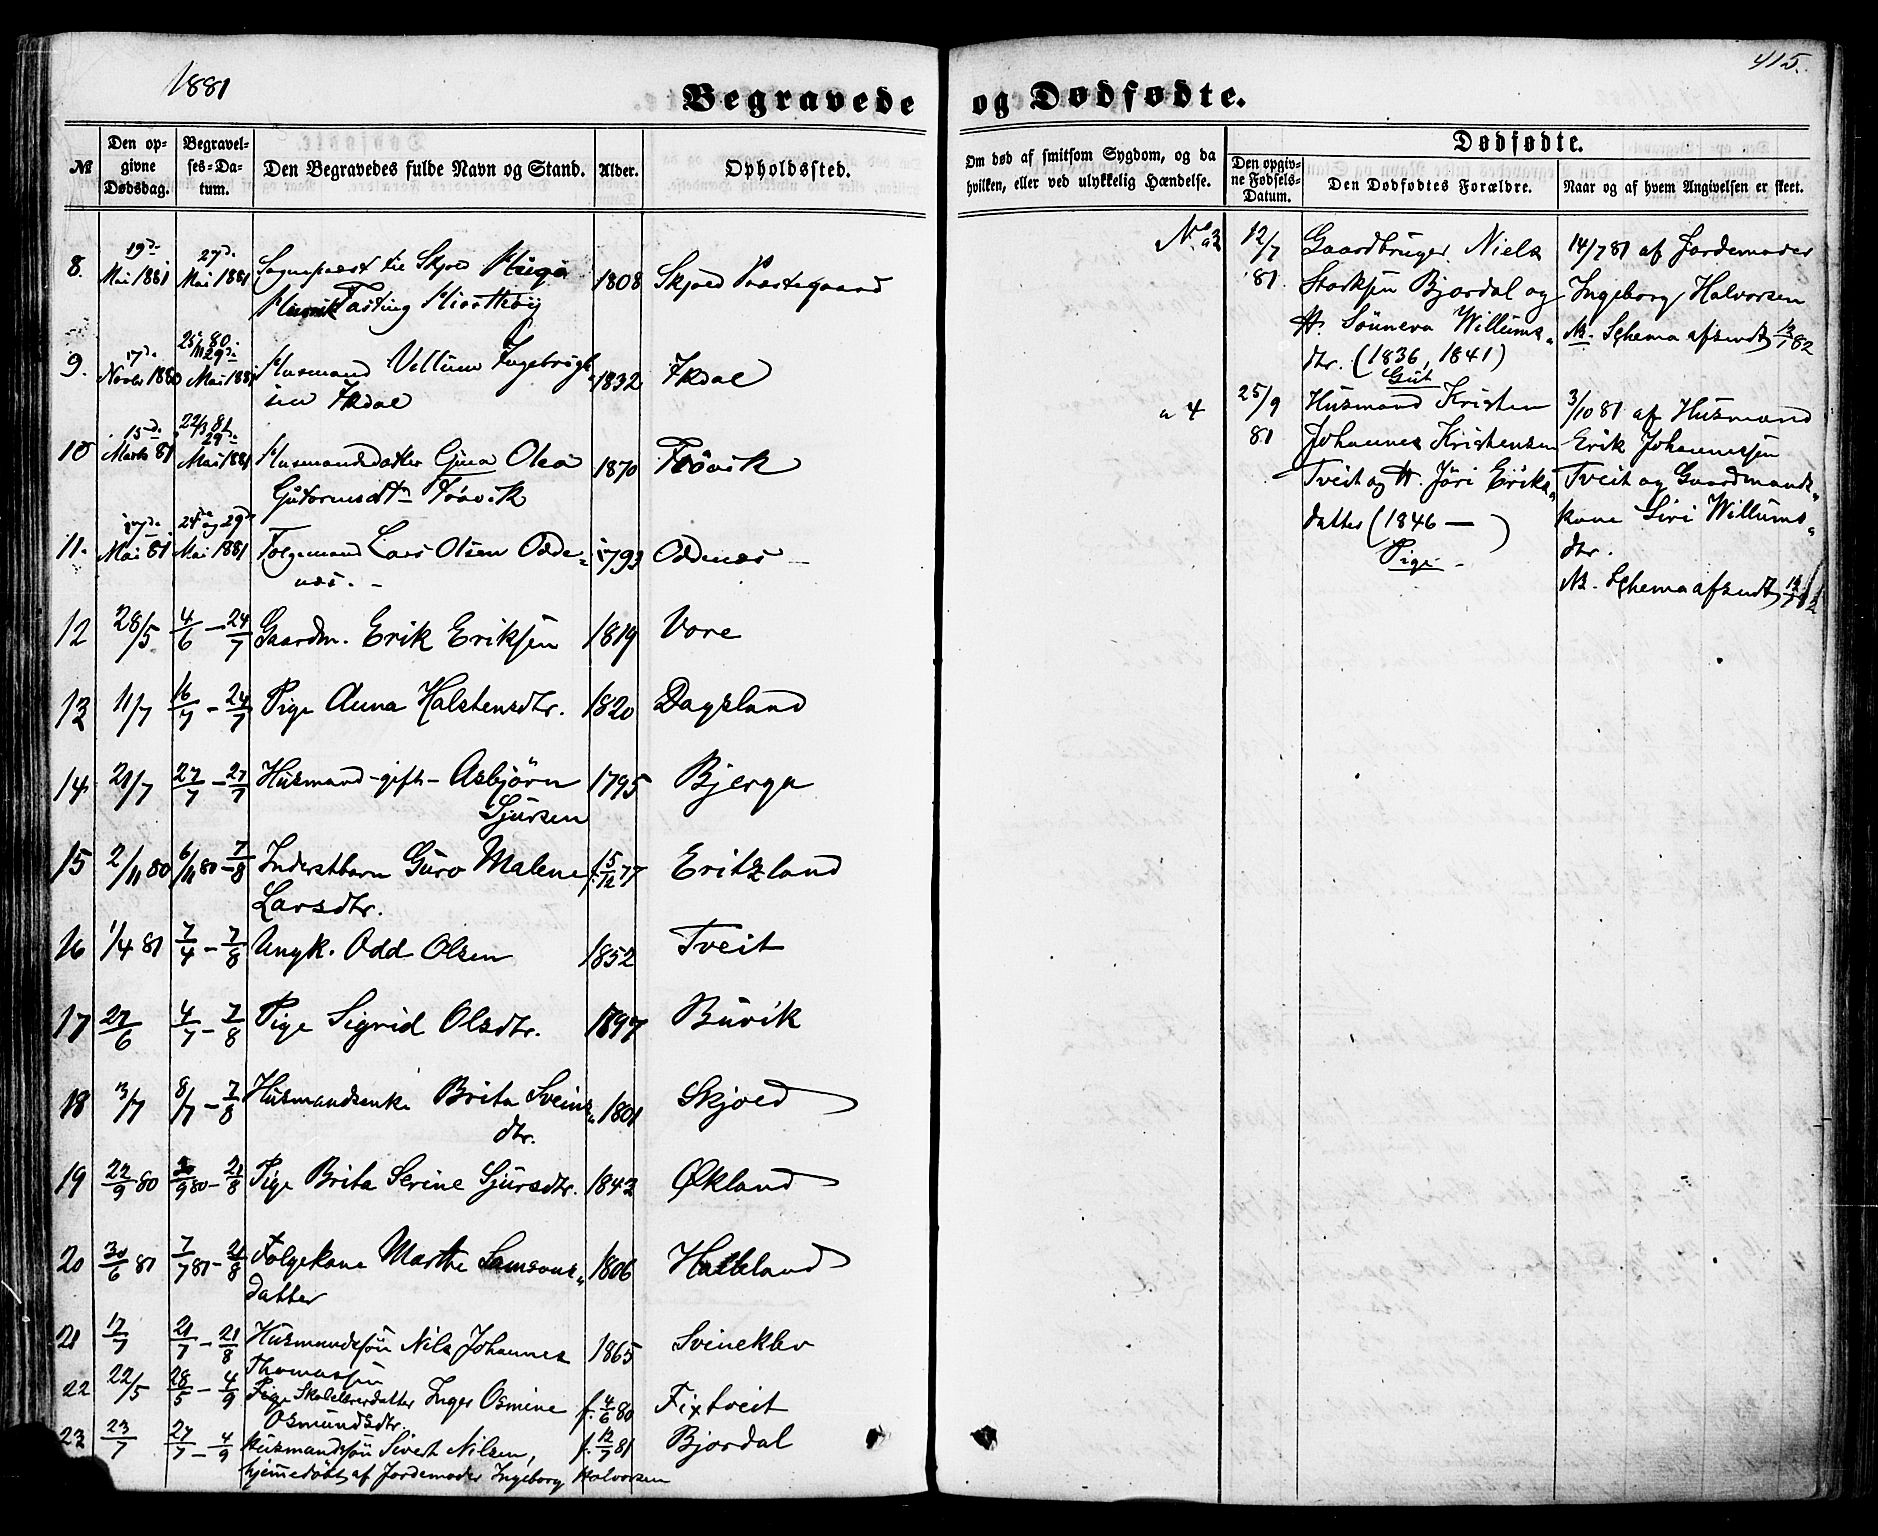 1881
415.
Begravede og Dødfødte.
№
Den opgivne Dødsdag.
Begravelses-Datum.
Den Begravedes fulde Navn og Stand.
Alder.
Opholdssted.
Om død af smitsom Sygdom, og da hvilken, eller ved ulykkelig Hændelse.
Dødfødte.
Den opgivne Fødsels-Datum.
Den Dødfødtes Forældre.
Naar og af hvem Angivelsen er skeet.
8. 19de Mai 1881 27de Mai 1881 Sognepræst til Skjold
Fasting 1808 Skjold Præstegaard
9. 17de Novbr 1880 29de Mai 1881 Husmand Villum Ingebrigt-
sen Ikdal 1832 Ikdal
10 15de Marts 81 22/3 81 29de Mai 1881 Husmandsdatter Gjina Olea
Gutormsdtr Frøvik 1870 Frøvik
11. 17de Mai 81 24de og 29de Mai 1881 Folgemand Lars Olsen Odde-
næs. 1793 Oddenæs
12 28/5 4/6 - 24/7 Gaardm. Erik Eriksen 1819 Vore
13 11/7 16/7 - 24/7 Pige Anna Halstensdtr. 1820 Dagsland
14 21/7 27/7 - 27/7 Husmand - gift - Asbjørn
Sjursen 1795 Bjerga
15 2/11 80 6/11 80 - 7/8 Inderstbarn Guro Malene
Larsdtr. f. 5/12 77 Eritzland
16 1/4 81 7/4 - 7/8 Ungk. Odd Olsen 1852 Tveit
17 27/6 4/7 - 7/8 Pige Sigrid Olsdtr. 1897 Buvik
18 3/7 8/7 - 7/8 Husmandsenke Brita Sveins-
dtr. 1801 Skjold
19 22/9 80 30/9 80 - 21/8 Pige Brita Serine Sjursdtr. 1843 Økland
20 30/6 81 7/7 81 - 21/8 Folgekone Marthe Samsons-
datter 1806 Hatteland
21 17/7 21/7 - 21/8 Husmandssøn Nils Johannes
Thomassen 1865 Svineklev
22 22/5 28/5 - 4/9 Pige Skolelærerdatter Inger Osmine
Osmundsdtr. f. 4/6 80 Fixtveit
23 23/7 27/7 - 4/9 Husmandssøn Sivert Nilsen,
hjemmedøbt af Jordemoder Ingeborg Halvorsen f. 12/7 81 Bjordal
No 3 12/7 81 Gaardbruger Niels
Storksen Bjordal og
H. Sønneva Willums-
dtr. (1836, 1841)
Gut
14/7 81 af Jordemoder
Ingeborg Halvorsen
NB. Schema afsendt 13/1 82
" 4 25/9 81 Husmand Kristen
Johannes Kristensen
Tveit og H. Jøri Eriks-
datter (1846 — )
Pige
3/10 81 af Husmand
Erik Johannessen
Tveit og Gaardmands-
kone Siri Willums-
dtr.
NB. Schema afsendt 13/1 82